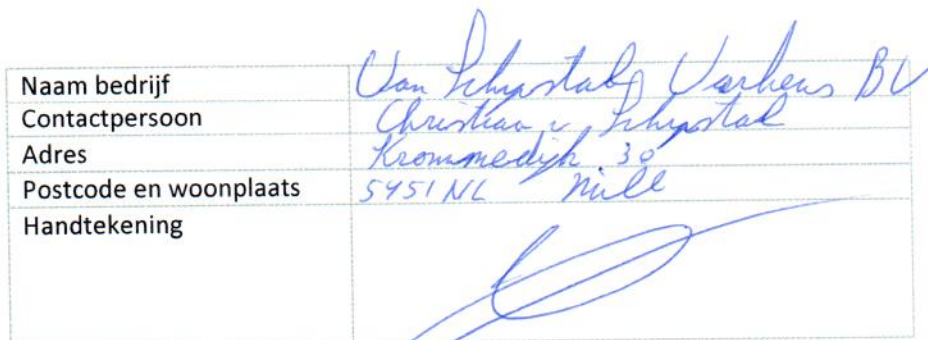 Naam bedrijf Van Schijndel Varkens BV
Contactpersoon Christiaan v
Adres Krommedijk 30
Postcode en woonplaats 5451 NL Mill
Handtekening